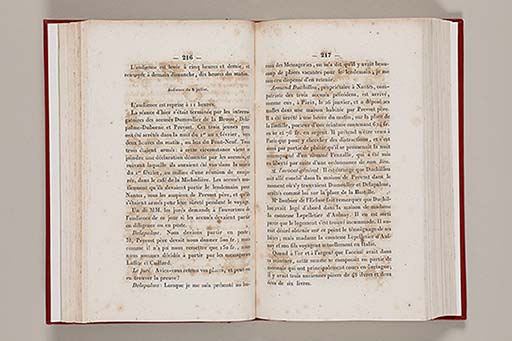 — 216 —
L'audience est levée à cinq heures et demie, et
renvoyée à demain dimanche, dix heures du matin.
Audience du 8 juillet.
L'audience est reprise à 11 heures.
La séance d'hier s'était terminée par les interro-
gatoires des accusés Dumoutier de la Benne, Dela-
palme-Duborne et Prevost. Ces trois jeunes gens
ont été arrêtés dans la nuit du 1er au 2 février, vers
deux heures du matin, au lieu du Pont-Neuf. Tous
trois étaient armés: à cette circonstance vient se
joindre une déclaration démentie par les accusés, et
suivant laquelle ils auraient été vus dans la soirée
du 1er février, au milieu d'une réunion de
dans le café de la Madeleine. Les accusés sou-
tiennent qu'ils devaient partir le lendemain pour
Nantes, sous les auspices de Prevost père, et qu'ils
s'étaient armés pour leur sûreté pendant le voyage.
Un de MM. les jurés demande à l'ouverture de
l'audience de ce jour si les accusés devaient partir
en diligence ou en poste.
Delapalme: Nous devions partir en poste;
M. Prevost père devait nous donner 800 fr.; mais
comme il n'a pu nous remettre que 250 fr., nous
nous sommes décidés à partir par les messageries
Laffitte et Caillard.
Le juré: Aviez-vous retenu vos places, et peut-on
en trouver la preuve?
Delapalme: Lorsque je me suis présenté au bu-
— 217 —
reau des Messageries, on m'a dit qu'il y avait beau-
coup de places vacantes pour le lendemain, je me
suis cru dispensé d'en retenir.
Armand Duchillou, propriétaire à Nantes, com-
patriote des trois accusés précédens, est arrivé,
comme eux, à Paris, le 26 janvier, et a déposé ses
malles dans une maison habitée par Prevost père.
Il a été arrêté à une heure du matin, sur la place de
la Bastille, porteur d'une ceinture contenant 624 fr.
en or et 76 fr. en argent. Il prétend n'être venu à
Paris que pour y chercher des distractions, et c'est
aussi par partie de plaisir qu'il se promenait la nuit
accompagné d'un nommé Fennalle, qui a été mis
en liberté par suite d'une ordonnance de non lieu.
M. l'avocat-général: Il est étrange que Duchillou
soit allé coucher dans la maison de Prevost dans le
moment où s'y trouvaient Dumoutier et Delapalme,
arrêtés comme lui sur la place de la Bastille.
Me Bauthier de l'Ecluse fait remarquer que Duchil-
lou avait logé d'abord dans la maison de madame
la comtesse Lepelletier d'Aulnay. Il en est sorti
parce que le logement s'est trouvé incommode. Il au-
rait désiré obtenir sur ce point le témoignage de son
hôtesse; mais madame la comtesse Lepelletier d'Aul-
nay et son fils voyagent actuellement en Italie.
Quand à l'or et à l'argent que l'accusé avait dans
sa ceinture, cette somme se composait en partie de
monnaie qui ont principalement cours en Bretagne;
il y avait trois anciennes pièces de 48 livres et deux
de six livres.